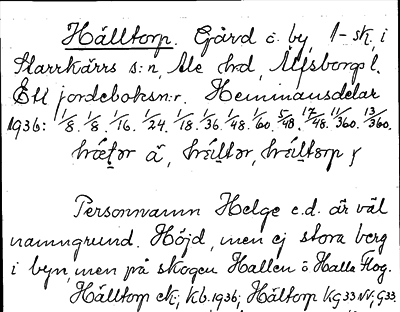 Hälltorp. Gård o. by, 1-sk, i
Starrkärrs s:n, Ale hrd, Älfsborgs l.
Ett jordeboksn:r. Hemmansdelar
1936: 1/8. 1/8. 1/16. 1/24. 1/18. 1/36. 1/48. 1/60. 5/48. 17/48. 11/360. 13/360.
Personnamn Helge e.d. är väl
namngrund. Höjd, men ej stora berg
i byn, men på skogen Hallen o Halle Flog.
Hälltorp ek; kb. 1936; Hältorp KG33 NV; G33.